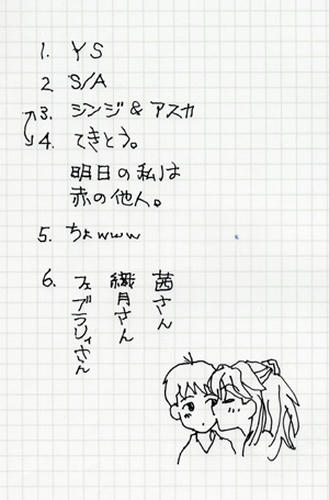 1. YS
2 S/A
3. シンジ & アスカ
4. てきとう。
明日の私は
赤の他人。
5. ちょwww
6. 茜さん
織月さん
フェブラリィさん